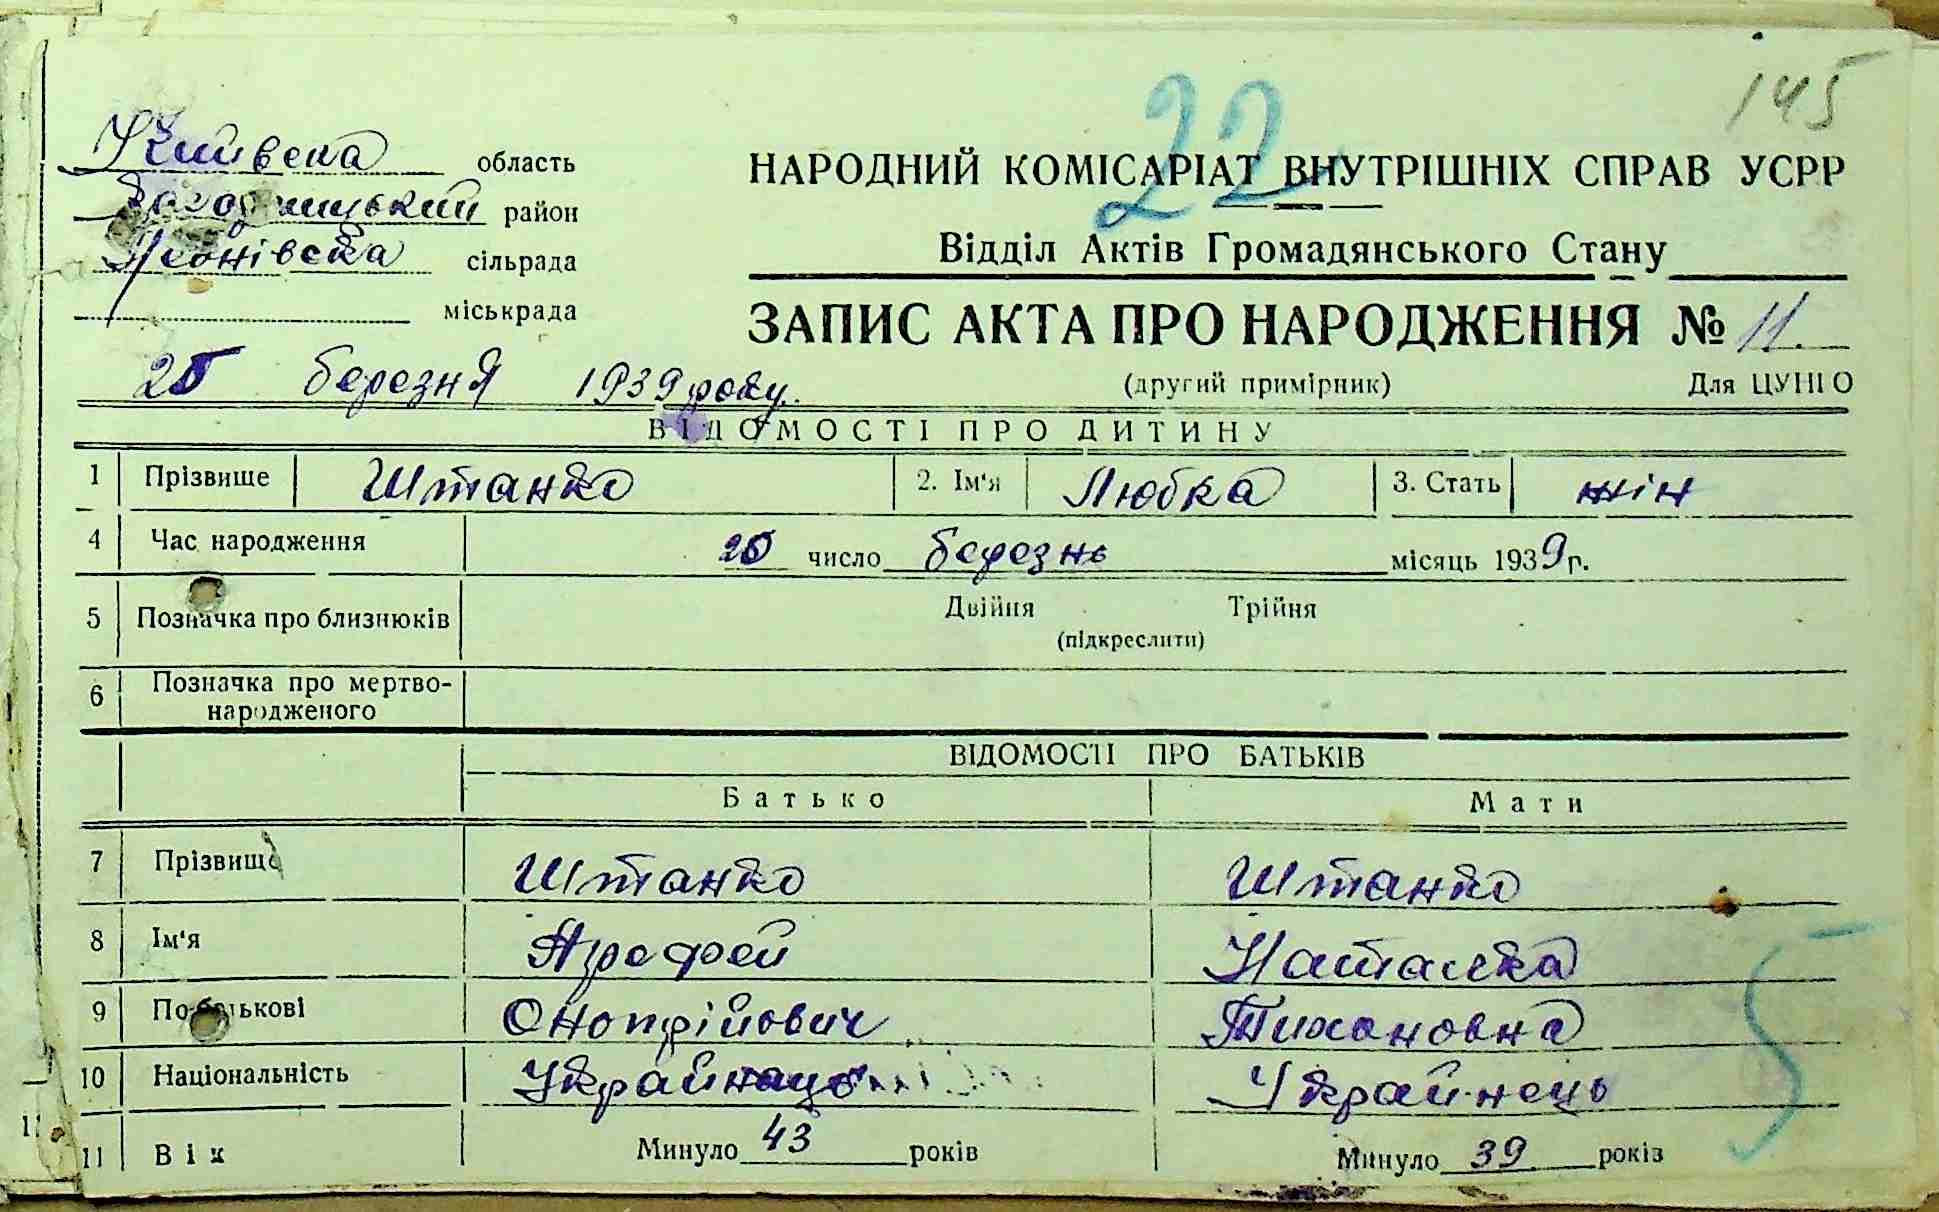 145
22
Київска область
район
сільрада
міськрада
НАРОДНИЙ КОМІСАРІАТ ВНУТРІШНІХ СПРАВ УСРР
Відділ Актів Громадянського Стану
ЗАПИС АКТА ПРО НАРОДЖЕННЯ № 11.
25 березня 1939 року.
(другий примірник) Для ЦУНГО
ВІДОМОСТІ ПРО ДИТИНУ
1 Прізвище Штанко 2. Ім'я Любка 3. Стать жін
4 Час народження 25 число березнь місяць 1939 р.
5 Позначка про близнюків Двійня Трійня
(підкреслити)
6 Позначка про мертво-
народженого
ВІДОМОСТІ ПРО БАТЬКІВ
Батько Мати
7 Прізвище Штанко Штанко
8 Ім'я Ярофей Наталка
9 По-батькові Онопрійович Тихоновна
10 Національність Украйнець Украйнець
11 Вік Минуло 43 років Минуло 39 років
5